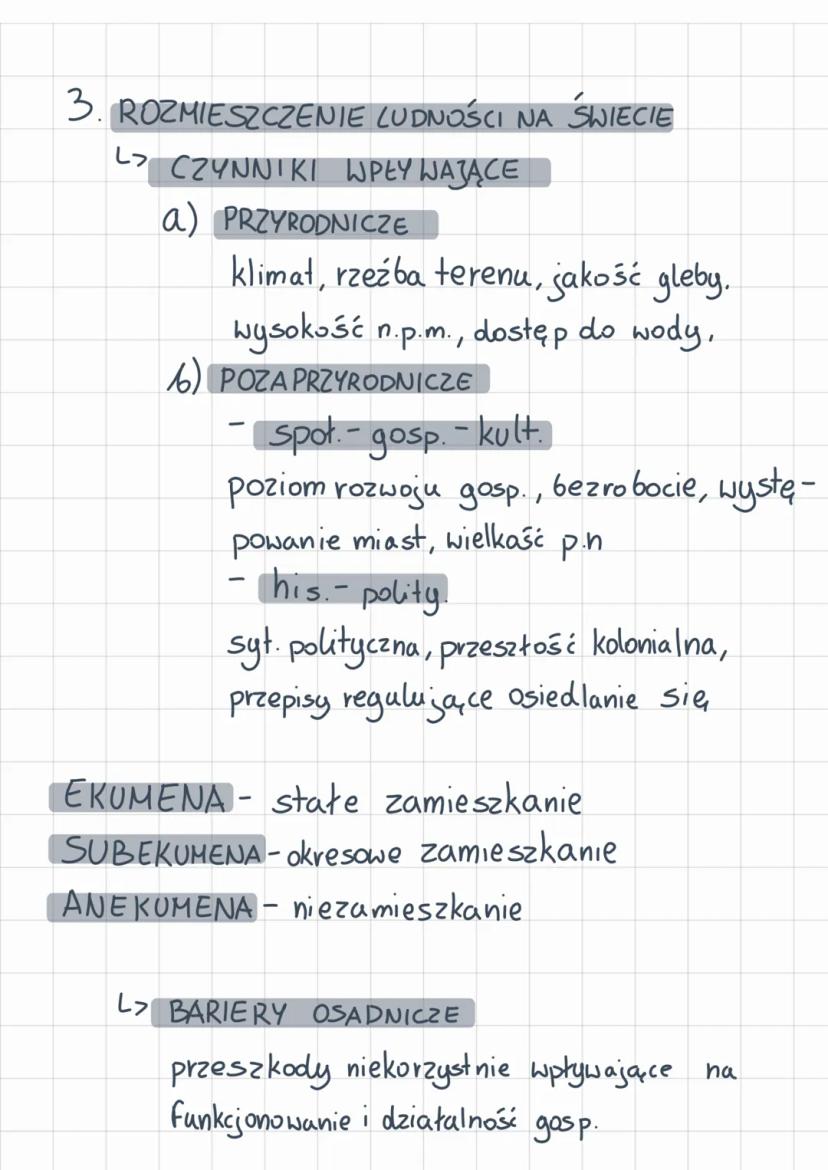 3. ROZMIESZCZENIE LUDNOŚCI NA ŚWIECIE
↳ CZYNNIKI WPŁYWAJĄCE
a) PRZYRODNICZE
klimat, rzeźba terenu, jakość gleby.
wysokość n.p.m., dostęp do wody,
b) POZAPRZYRODNICZE
- społ.- gosp. - kult.
poziom rozwoju gosp., bezrobocie, wystę-
powanie miast, wielkość p.n
- his.- polity.
syt. polityczna, przeszłość kolonialna,
przepisy regulujące osiedlanie się
EKUMENA - stałe zamieszkanie
SUBEKUMENA - okresowe zamieszkanie
ANEKUMENA - niezamieszkanie
↳ BARIERY OSADNICZE
przeszkody niekorzystnie wpływające na
funkcjonowanie i działalność gosp.